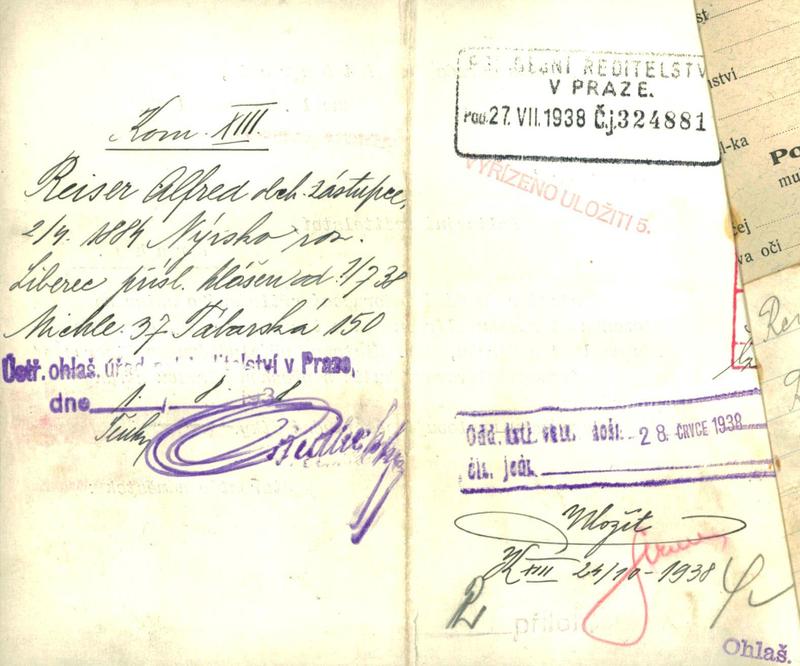 Kom. XIII
Reiser Alfred obch. zástupce,
2/9. 1884 Nýrsko roz.
Liberec přísl. hlášen od 1/7 38
Michle. 37 Táborská 150
Ústř. ohlaš. úřad ředitelství v Praze,
dne 1. / 8. 1938
ŘEDITELSTV
V PRAZE.
Pod. 27. VII. 1938 Č.j. 324881
VYŘÍZENO ULOŽITI 5.
Odd. došl. 28. ČRVCE 1938
čís. jedn.
Uložit
K XIII 24/10 - 1938
příloh
Ohlaš.
st
ství
l-ka
Po
mu
cej
va očí
Rei